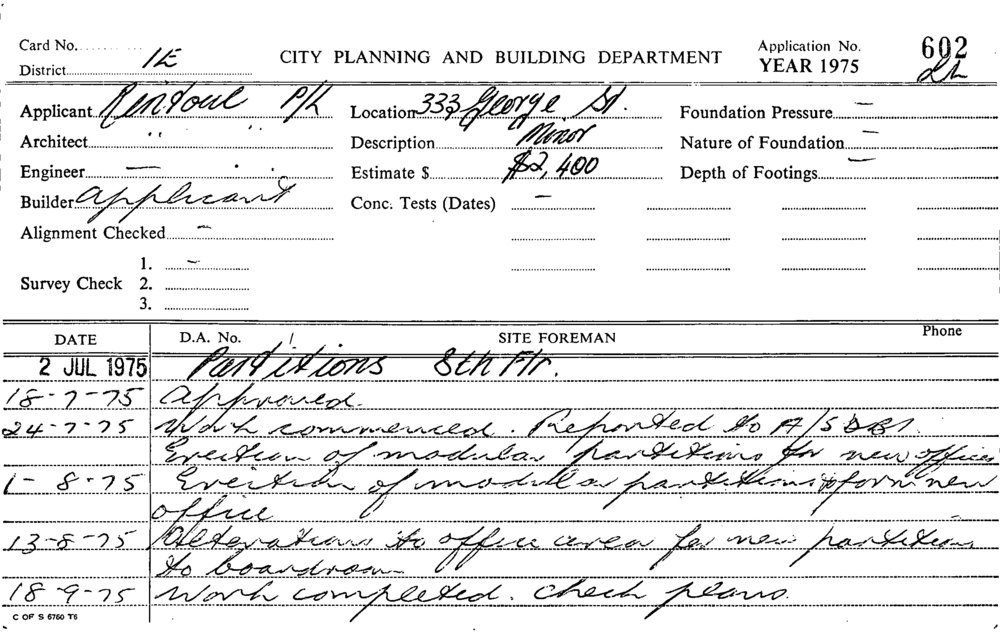 Card No.
District 1E
CITY PLANNING AND BUILDING DEPARTMENT
Application No. 602
YEAR 1975
Applicant Rintoul P/L
Location 333 George St.
Foundation Pressure —
Architect " "
Description Minor
Nature of Foundation —
Engineer —
Estimate $ $2,400
Depth of Footings —
Builder Applicant
Conc. Tests (Dates) —
Alignment Checked —
Survey Check 1. —
2.
3.
DATE D.A. No. / SITE FOREMAN Phone
2 JUL 1975 Partitions 8th Flr.
18-7-75 Approved.
24-7-75 Work commenced. Reported to A/S
Erection of modular partitions for new offices
1-8-75 Erection of modular partitions to form new
office
13-8-75 Alterations to office area for new partition
to boardroom
18-9-75 Work completed. Check plans.
C OF S 6760 T6